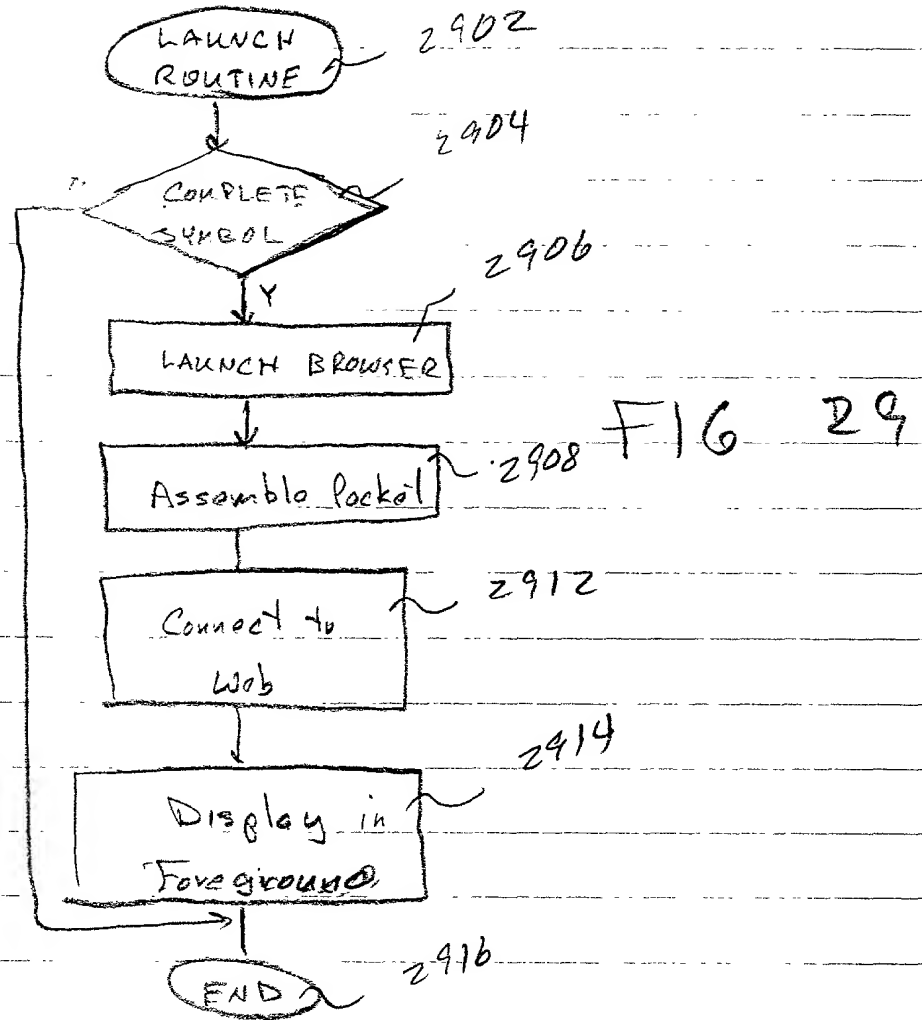 LAUNCH
ROUTINE
2902
2904
COMPLETE
SYMBOL
Y
2906
LAUNCH BROWSER
FIG 29
Assemble Packet
2908
2912
Connect to
Web
2914
Display in
Foreground
END
2916